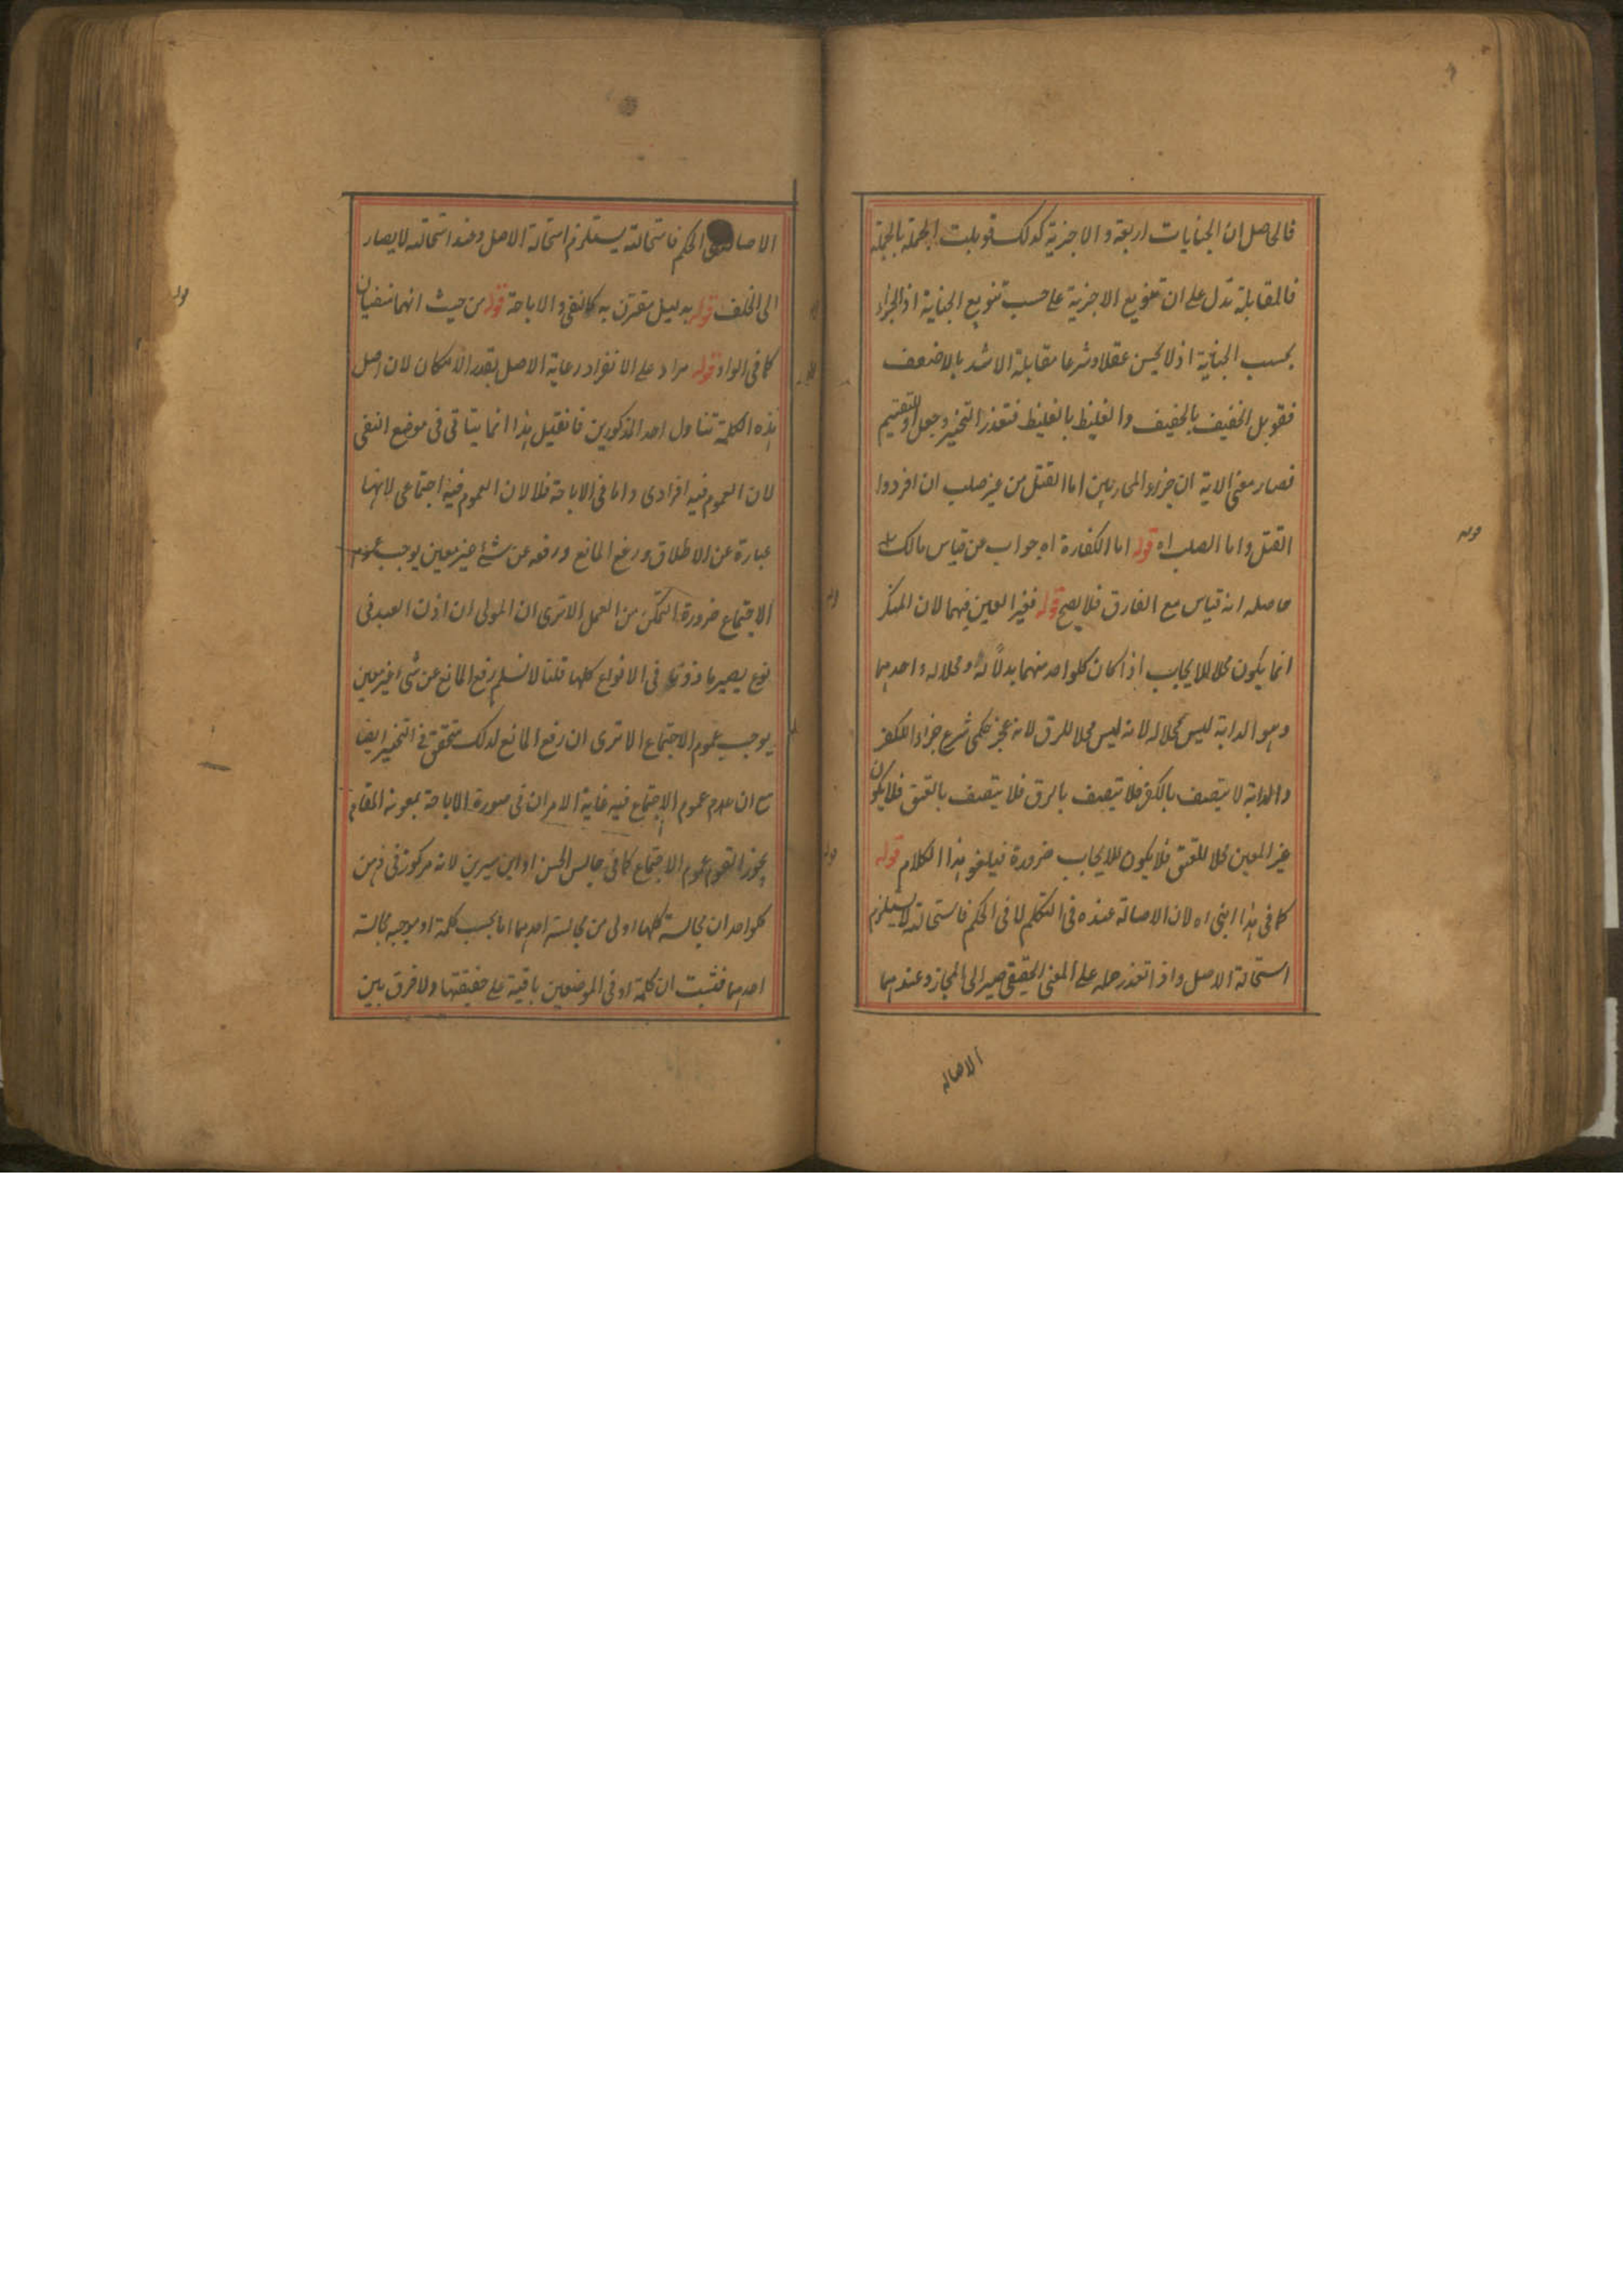 فالحاصل ان الجنايات اربعة والاجزية كذلك قوبلت الجملة بالجملة
فالمقابلة تدل على ان تنويع الاجزية على حسب تنويع الجناية اذ الجزاء
بحسب الجناية اذ لا يحسن عقلا وشرعا مقابلة الاشد بالاضعف
فقوبل الخفيف بالخفيف والغليظ بالغليظ فتعذر التخيير وجعل او للتقسيم
فصار معنى الاية ان جزاء المحاربين اما القتل من غير صلب ان افردوا
القتل واما الصلب اه قوله اما الكفارة اه جواب عن قياس مالك
حاصله انه قياس مع الفارق فلا يصح قوله فغير العين فيهما لان المنكر
انما يكون محلا للايجاب اذا كان كلواحد منهما بدلا له ومحلا له واحدهما
وهو الدابة ليس محلا له لانه ليس محلا للرق لانه عجز حكمى شرع جزاء للكفر
والدابة لا تتصف بالكفر فلا تتصف بالرق فلا تتصف بالعتق فلا يكون
غير المعين محلا للعتق فلا يكون للايجاب ضرورة فيلغو هذا الكلام قوله
كما فى هذا ابنى اه لان الاصالة عنده فى التكلم لا فى الحكم فاستحالته لا يستلزم
استحالة الاصل واذا تعذر حمله على المعنى الحقيقى صير الى المجاز وعندهما
الاصالة
الاصالة فى الحكم فاستحالته يستلزم استحالة الاصل وعند استحالته لا يصار
الى الخلف قوله بدليل مقترن به كالنفى والاباحة قوله من حيث انهما منفيان
كما فى الواو قوله مراد على الانفراد رعاية الاصل بقدر الامكان لان اصل
هذه الكلمة تناول احد المذكورين فان قيل هذا انما يتاتى فى موضع النفى
لان العموم فيه افرادى واما فى الاباحة فلا لان العموم فيه اجتماعى لانها
عبارة عن الاطلاق ورفع المانع ورفعه عن شئ غير معين يوجب عموم
الاجتماع ضرورة التمكن من العمل الا ترى ان المولى ان اذن العبد فى
نوع يصير ماذونا فى الانواع كلها قلنا لا نسلم رفع المانع عن شئ غير معين
يوجب عموم الاجتماع الا ترى ان رفع المانع لذلك متحقق فى التخيير ايضا
مع ان عدم عموم الاجتماع فيه غاية الامر ان فى صورة الاباحة بمعونة المقام
يجوز القوم عموم الاجتماع كما فى جالس الحسن او ابن سيرين لانه مركوز فى ذهن
كلواحد ان مجالسة كلها اولى من مجالسة احدهما اما بحسب كلمة او موجبه مجالسة
احدهما فثبت ان كلمة او فى الموضعين باقية على حقيقتها ولا فرق بين